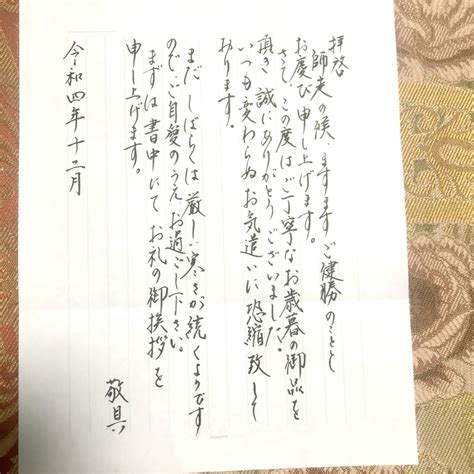 拝啓
師走の候、ますますご健勝のこととし
お慶び申し上げます。
さて、この度はご丁寧なお歳暮の御品を
頂き誠にありがとうございました。
いつも変わらぬお気遣いに恐縮致して
おります。
まだしばらくは厳しい寒さが続くようです
ので、ご自愛のうえお過ごし下さい。
まずは書中にてお礼の御挨拶を
申し上げます。
敬具
令和四年十二月